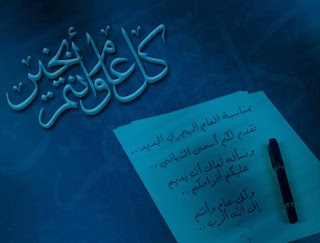 كل عام وأنتم بخير
بمناسبة العام الهجري الجديد ..
نقدم لكم أسمى التهاني ..
ونسأله تعالى أن يديم
عليكم أفراحكم ..
وكل عام وأنتم
إلى الله أقرب ..